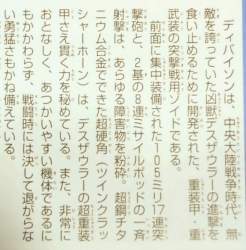 ディバイソンは、中央大陸戦争時代、無
敵を誇っていた凶獣デスザウラーの進撃を
食い止めるために開発された、重装甲・重
武装の突撃戦用ゾイドである。
前面に集中装備された105ミリ17連突
撃砲と、2基の8連ミサイルポッドの一斉
射撃は、あらゆる障害物を粉砕。超鋼チタ
ニウム合金でできた超硬角（ツインクラッ
シャーホーン）は、デスザウラーの超重装
甲さえ貫く力を秘めている。また、非常に
おとなしく、あつかいやすい機体であるに
もかかわらず、戦闘時には決して退がらな
い勇猛さもかね備えている。